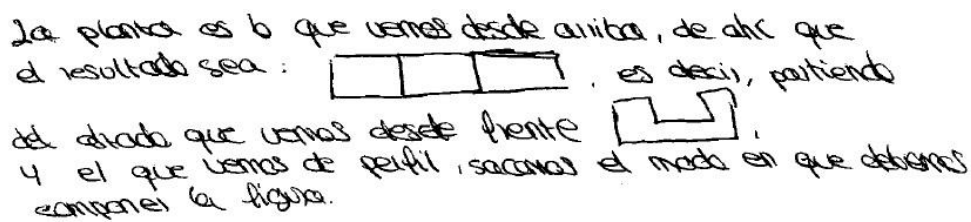 La planta es lo que vemos desde arriba, de ahí que
el resultado sea: , es decir, partiendo
del alzado que vemos desde frente ,
y el que vemos de perfil, sacamos el modo en que debemos
componer la figura.